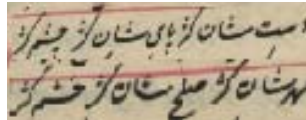 دست شان کژ پای شان کژ چشم کژ
مهرشان کژ صلح شان کژ خشم کژ